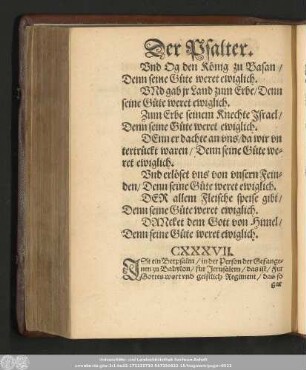 Der Psalter.
Vnd Og den König zu Basan /
Denn seine Güte weret ewiglich.
VNd gab jr Land zum Erbe / Denn
seine Güte weret ewiglich.
Zum Erbe seinem Knechte Israel /
Denn seine Güte weret ewiglich.
DEnn er dachte an vns / da wir vn
tertrückt waren / Denn seine Güte we-
ret ewiglich.
Vnd erlöset vns von vnsern Fein-
den / Denn seine Güte weret ewiglich.
DER allem Fleische speise gibt /
Denn seine Güte weret ewiglich.
DAncket dem Gott von Himel /
Denn seine Güte weret ewiglich.
CXXXVII.
ISt ein Betpsalm / in der Person der Gefange-
nen zu Babylon / für Jerusalem / das ist / für
Gottes wort vnd geistlich Regiment / das so